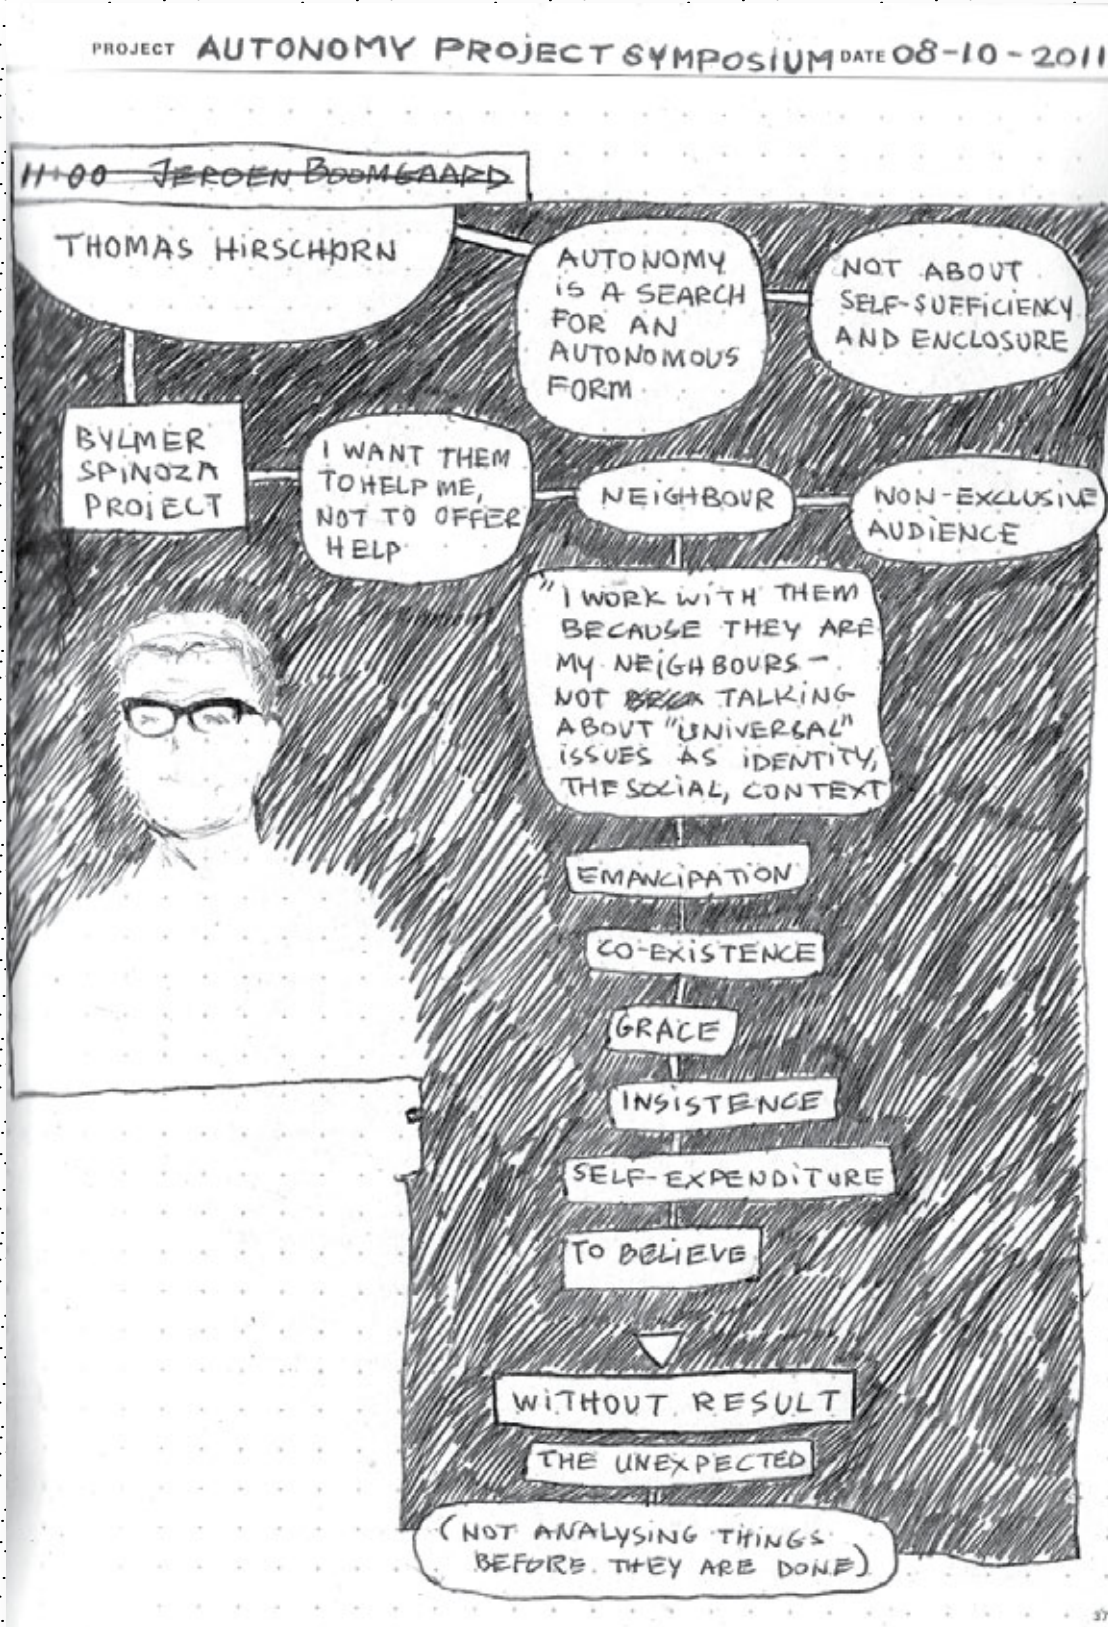 PROJECT AUTONOMY PROJECT SYMPOSIUM DATE 08-10-2011
11:00 JEROEN BOOMGAARD
THOMAS HIRSCHORN
AUTONOMY
IS A SEARCH
FOR AN
AUTONOMOUS
FORM
NOT ABOUT
SELF-SUFFICIENCY
AND ENCLOSURE
BYLMER
SPINOZA
PROJECT
I WANT THEM
TO HELP ME,
NOT TO OFFER
HELP
NEIGHBOUR
NON-EXCLUSIVE
AUDIENCE
"I WORK WITH THEM
BECAUSE THEY ARE
MY NEIGHBOURS -
NOT TALKING
ABOUT "UNIVERSAL"
ISSUES AS IDENTITY,
THE SOCIAL, CONTEXT
EMANCIPATION
CO-EXISTENCE
GRACE
INSISTENCE
SELF-EXPENDITURE
TO BELIEVE
WITHOUT RESULT
THE UNEXPECTED
(NOT ANALYSING THINGS
BEFORE THEY ARE DONE)
37